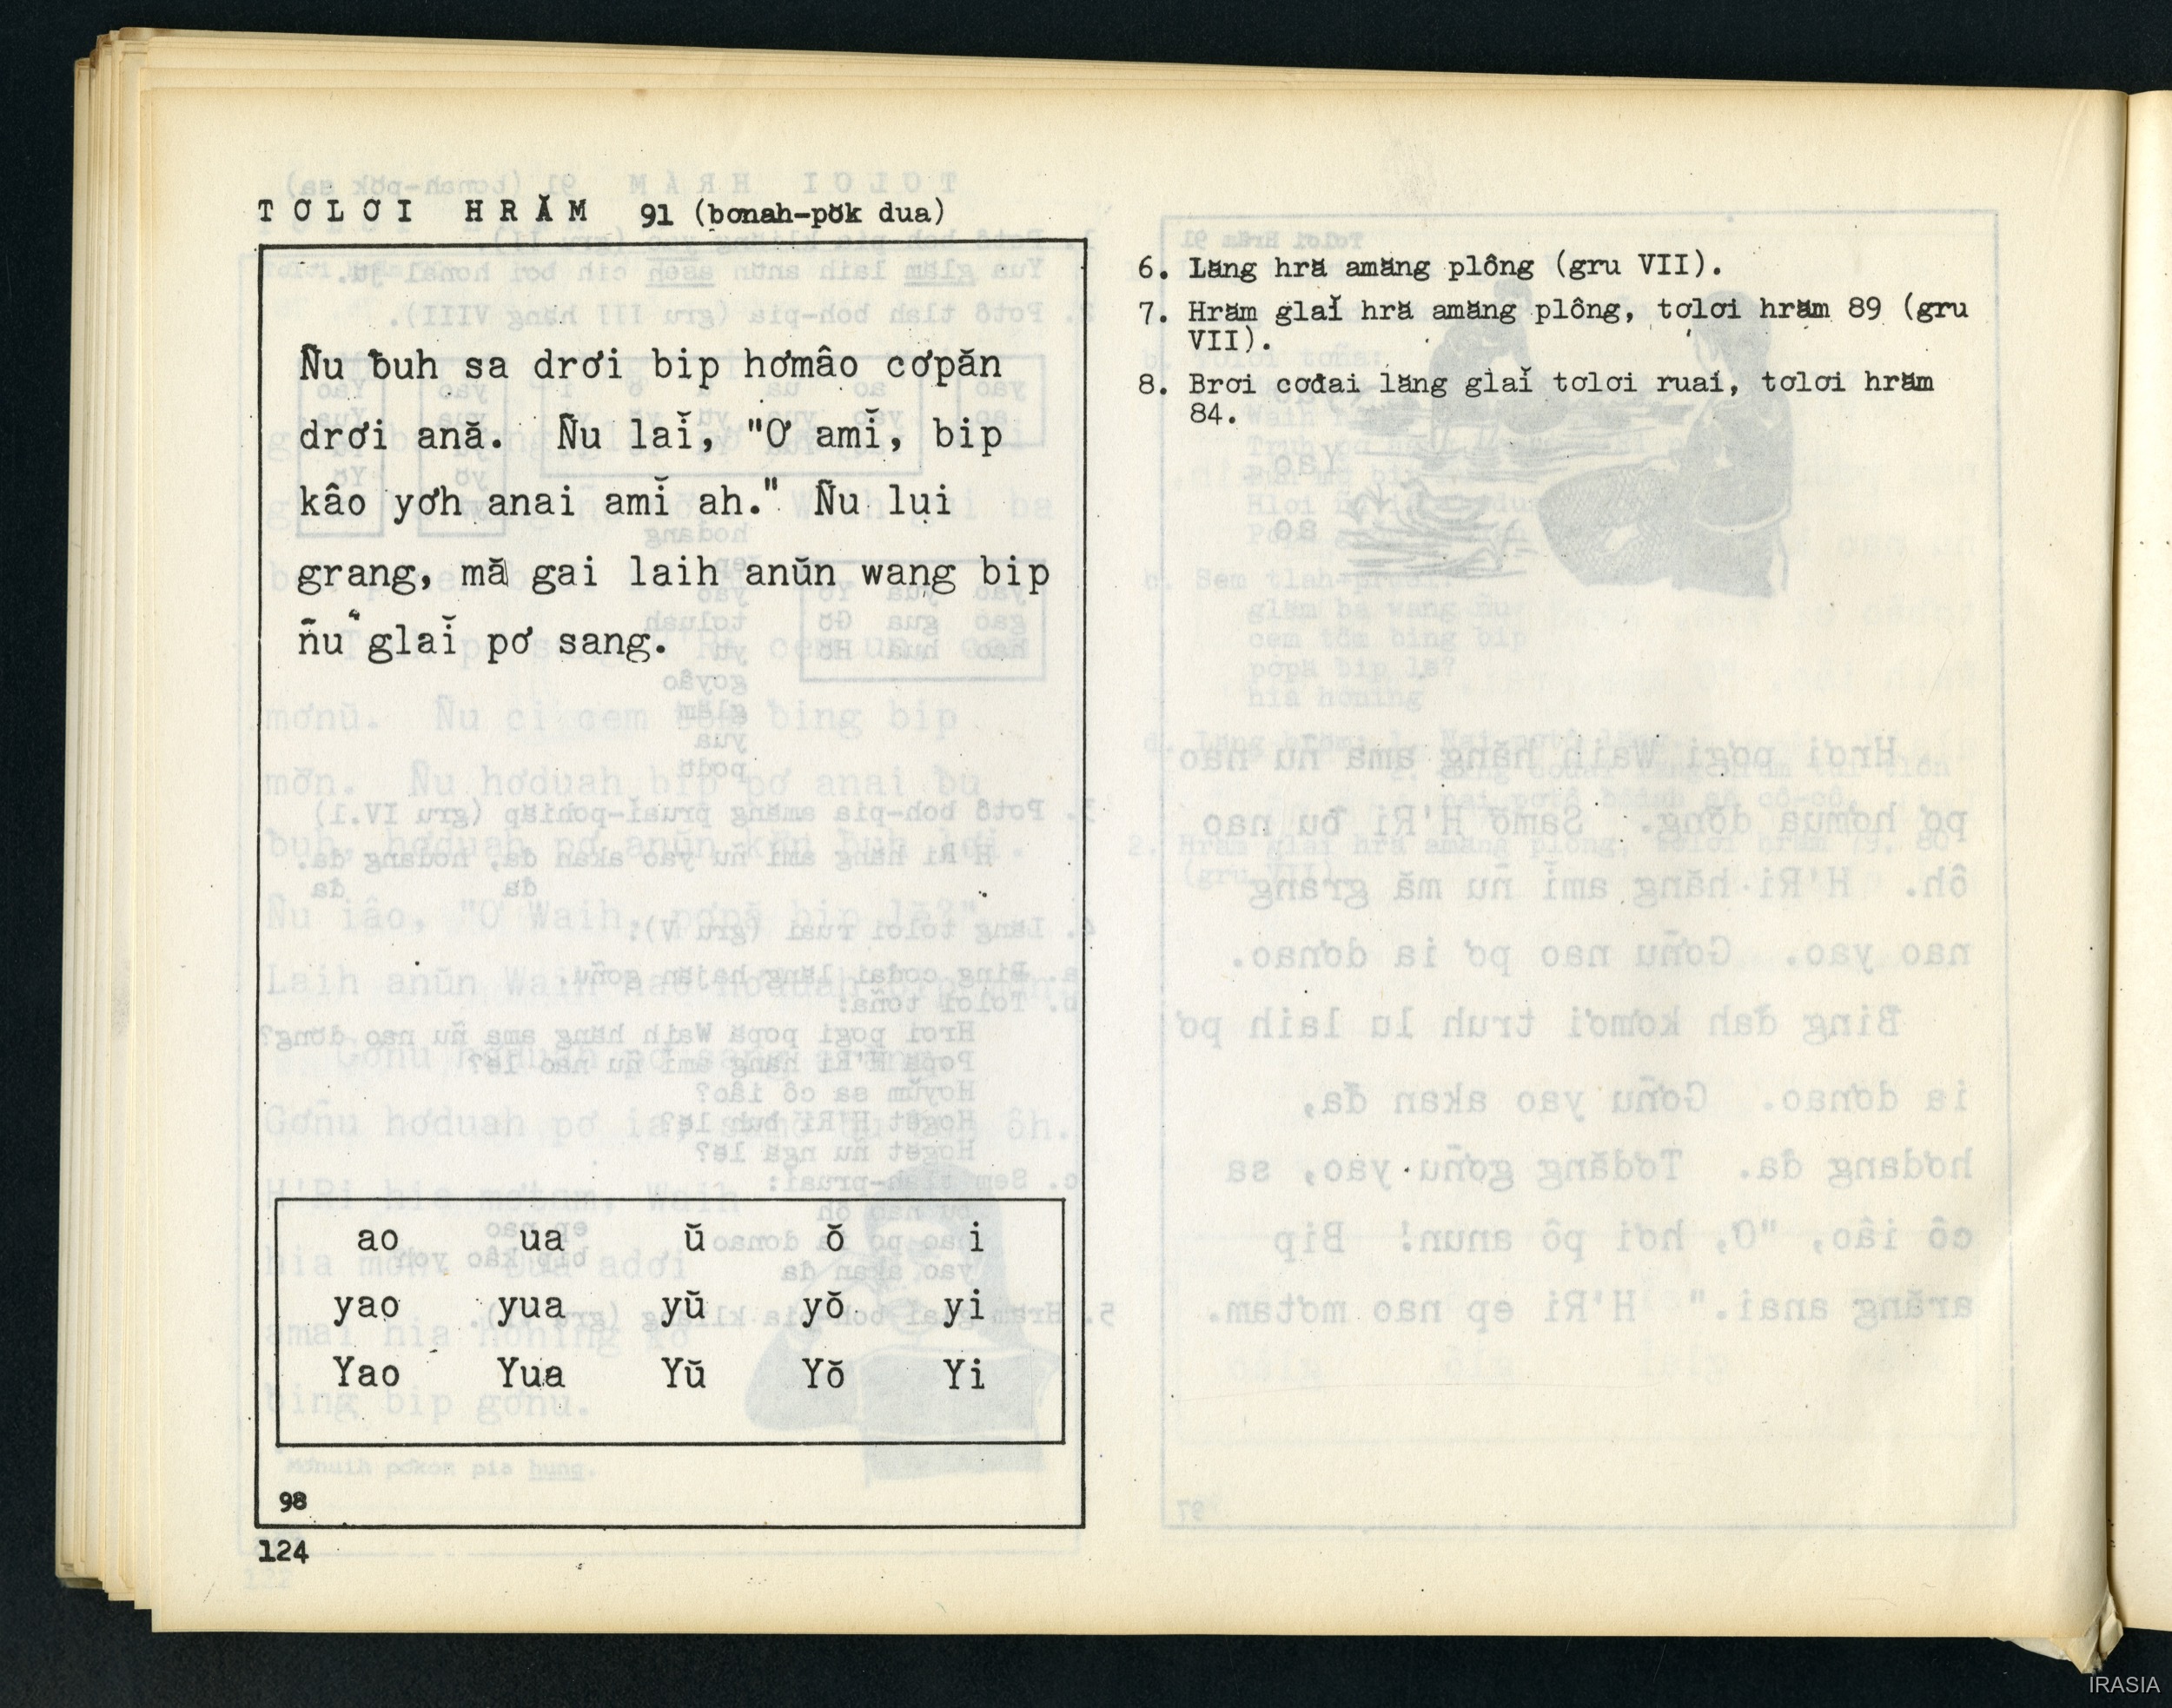 TƠLƠI HRĂM 91 (bơnah-pŏk dua)
Ñu ƀuh sa drơi bip hơmâo cơpăn
drơi ană. Ñu laĭ, "Ơ amĭ, bip
kâo yơh anai amĭ ah." Ñu lui
grang, mă gai laih anŭn wang bip
ñu glaĭ pơ sang.
ao ua ŭ ŏ i
yao yua yŭ yŏ yi
Yao Yua Yŭ Yŏ Yi
98
124
6. Lăng hră amăng plông (gru VII).
7. Hrăm glaĭ hră amăng plông, tơlơi hrăm 89 (gru
VII).
8. Brơi cơđai lăng glaĭ tơlơi ruai, tơlơi hrăm
84.
IRASIA